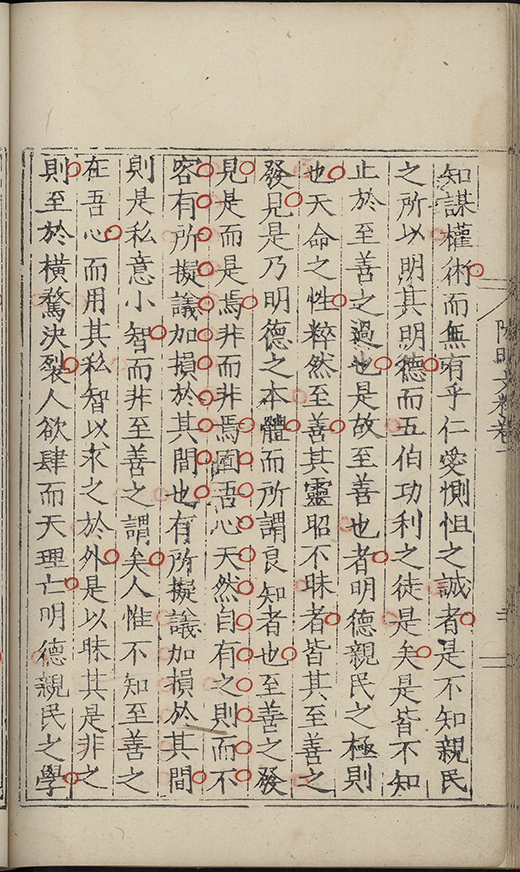 知謀權術而無有乎仁愛惻怛之誠者是不知親民
之所以明其明德而五伯功利之徒是矣是皆不知
止於至善之過也是故至善也者明德親民之極則
也天命之性粹然至善其靈昭不昧者皆其至善之
發見是乃明德之本體而所謂良知者也至善之發
見是而是焉非而非焉固吾心天然自有之則而不
容有所擬議加損於其間也有所擬議加損於其間
則是私意小智而非至善之謂矣人惟不知至善之
在吾心而用其私智以求之於外是以昧其是非之
則至於橫騖決裂人欲肆而天理亡明德親民之學
陽明文粹卷一